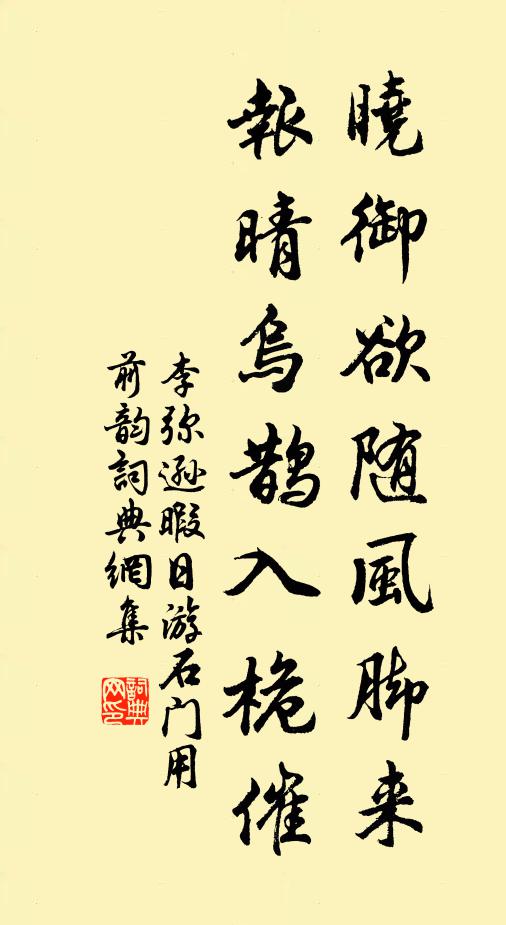 曉御欲随風脚来
報晴烏鵲入桅催
李弥遜暇日游石门用
前韵詞典網集
詞典
网印